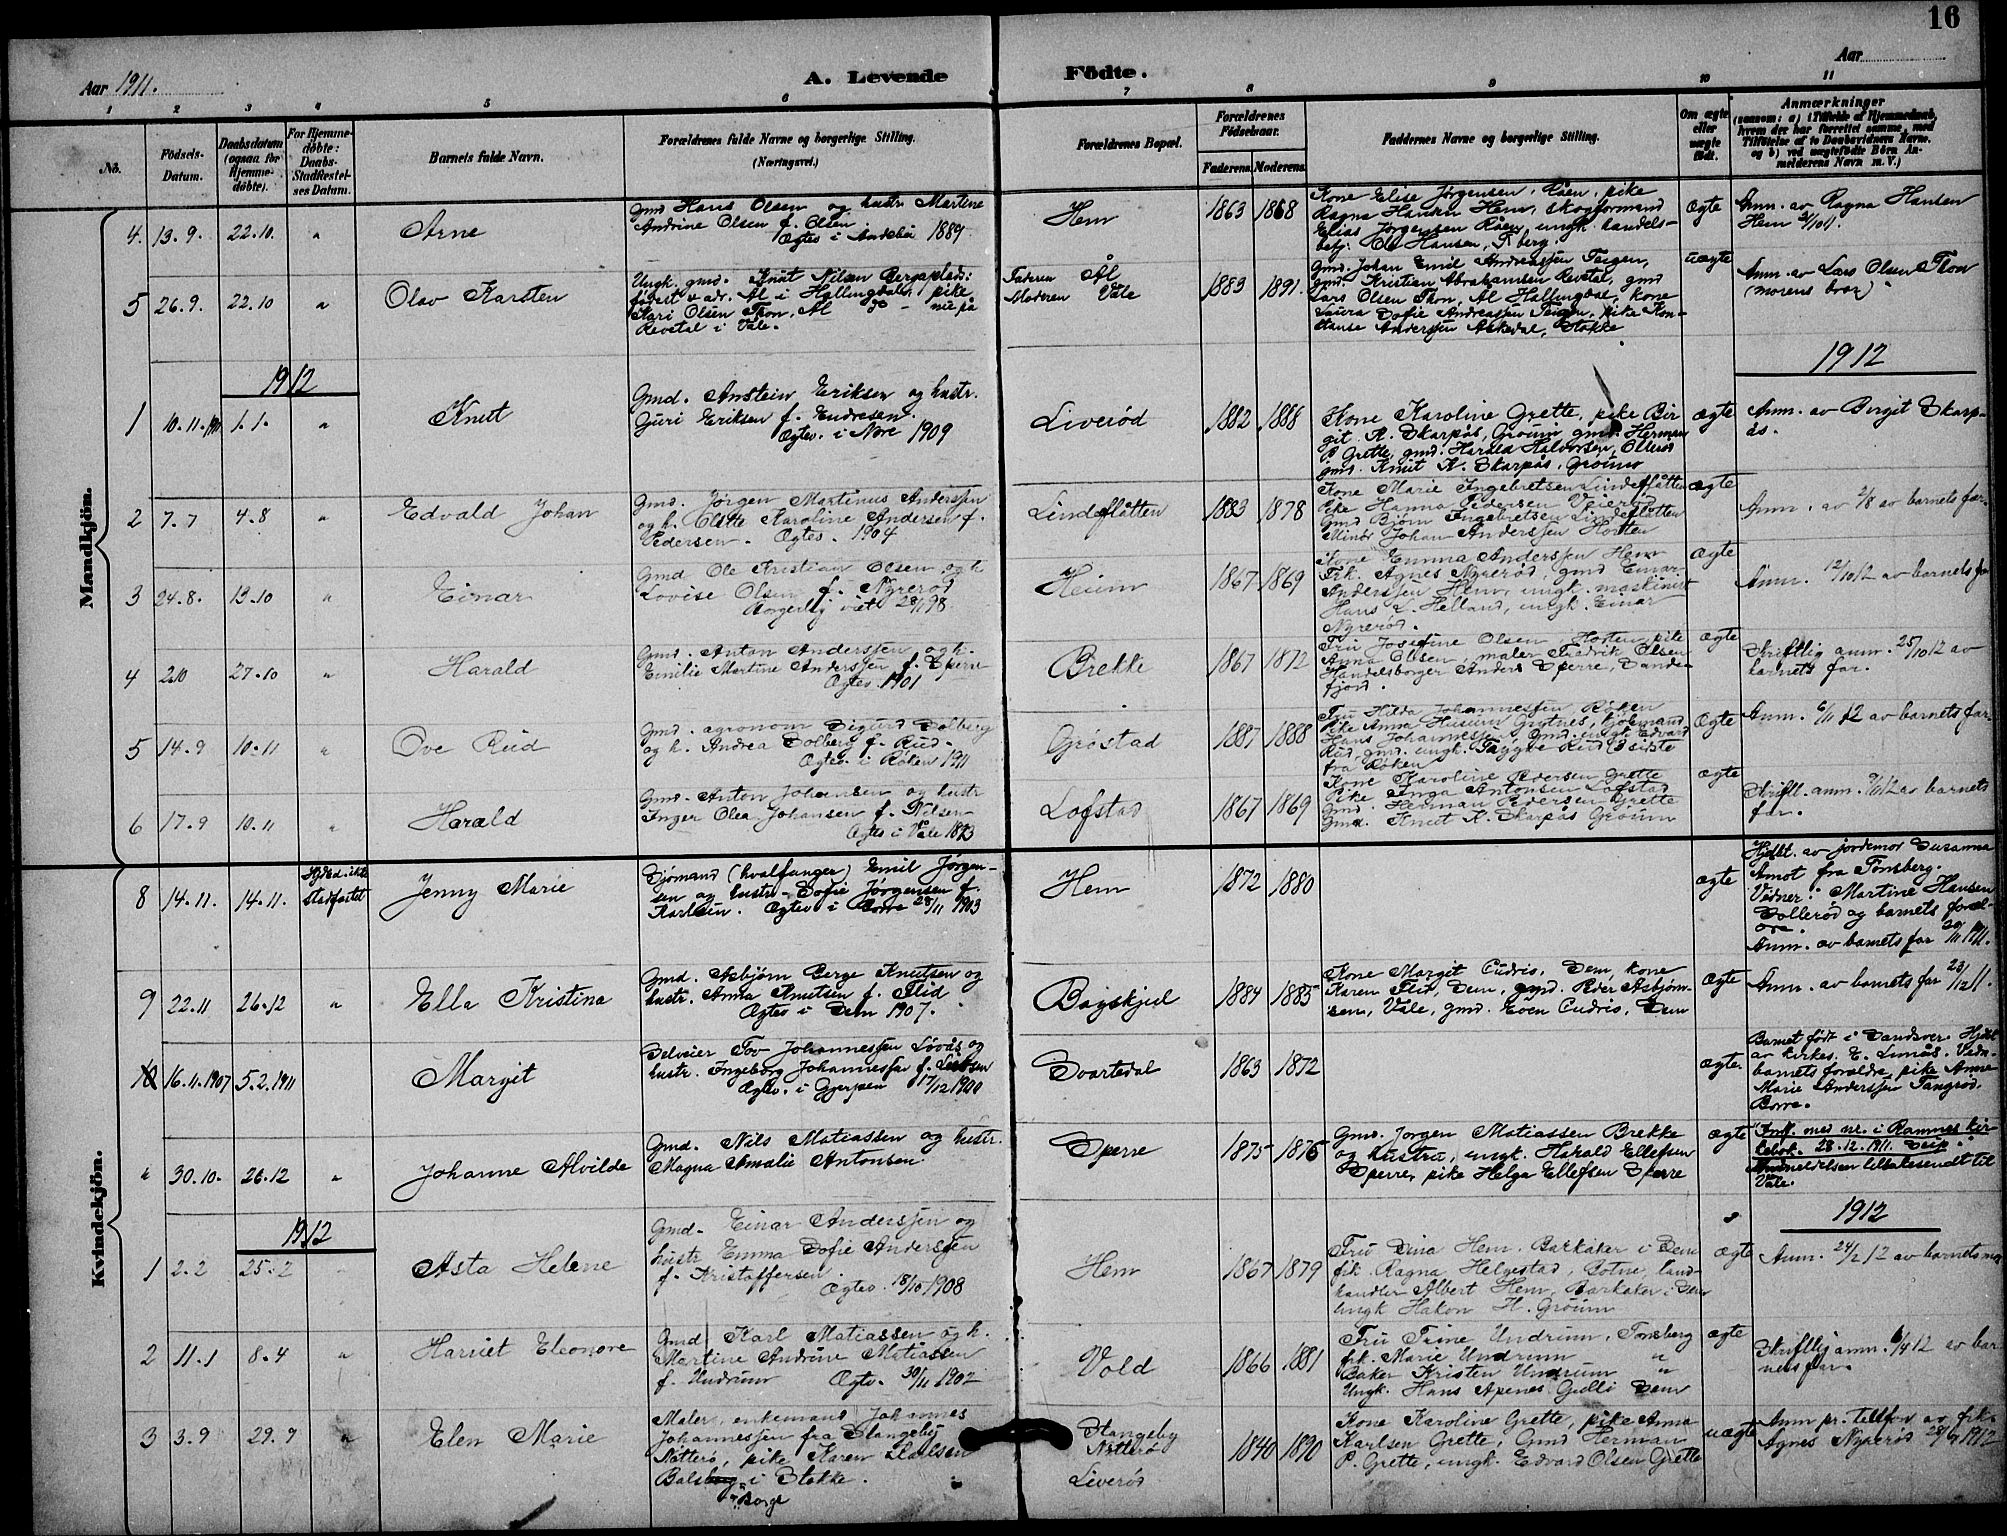 16
Aar 1911.
A. Levende Födte.
Aar
1 2 3 4 5 6 7 8 9 10 11
No.
Födsels-Datum.
Daabsdatum (ogsaa for Hjemme-döbte).
For Hjemme-döbte: Daabs-Stadfæstel-ses Datum.
Barnets fulde Navn.
Forældrenes fulde Navne og borgerlige Stilling. (Næringsvei.)
Forældrenes Bopæl.
Forældrenes Födselsaar.
Faderens. Moderens.
Faddernes Navne og borgerlige Stilling.
Om ægte eller uægte födt.
Anmærkninger
(saasom: a) i Tilfælde af Hjemmedaab, hvem der har forrettet samme, med Tilföielse af to Daabsvidners Navne, og b) ved uægtefödte Börn An-melderens Navn m. V.)
Mandkjön.
4. 13.9. 22.10. "
Arne
Gmd Hans Olsen og hustr. Martine
Andrine Olsen f. Olsen
Ægtev. i Andebu 1889.
Hem
1863 1868
Kone Elise Jørgensen, Råen, pike
Ragna Hansen Hem, skogformand
Elias Jørgensen Råen, ungk. handels-
betj. Ole Hansen, T.berg.
Ægte
Anm. av Ragna Hansen
Hem
5 26.9. 22.10 "
Olav Karsten
Ungk. gmd. Knut Nilsen Bergaplads:
födest. & adr. Ål i Hallingdal, pike
Kari Olsen Thon, Ål do - nu på
Revetal i Våle.
Faderen Ål
Moderen Våle
1883 1891.
Gmd. Johan Emil Andreassen Teigen,
gmd. Kristian Abrahamsen Revetal, gmd
Lars Olsen Thon, Ål Hallingdal, kone
Laura Sofie Andreassen Teigen, pike Kon-
stanse Anderssen Askedal, Stokke
uægte
Anm. av Lars Olsen Thon
(morens bror)
1912
1912
1 10.11.1911 1.1. "
Knut
Gmd. Anstein Eriksen og hustr.
Guri Eriksen f. Endresen.
Ægtev. i Nore 1909
Liverød
1882 1888
Kone Karoline Grette, pike Bir-
git K. Skarpås, Grouim gmd. Herman
P. Grette, gmd. Harald Halvorsen,
gmd. Knut K. Skarpås, Grouim
ægte
Anm. av Birgit Skarp-
ås.
2 7.7 4.8 "
Edvald Johan
Gmd. Jørgen Martinus Anderssen
og h. Olette Karoline Andersen f.
Pedersen. Ægtev. 1904
Lindeflåtten
1883 1878
Kone Marie Ingebretsen Lindeflåtten
Pike Hanna Pedersen Veierød
Gmd Bjørn Ingebretsen Lindeflåtten
Minør Johan Anderssen Horten
ægte
Anm. av 2/8 av barnets far.
3 24.8. 13.10 "
Einar
Gmd. Ole Kristian Olsen og h
Lovise Olsen f. Nyrerød
Borgerlig viet
Heim
1867 1869
Kone Emma Anderssen Hem
Frk. Agnes Nyrerød, gmd Einar
Anderssen Hem, ungk. maskinist
Hans L. Helland, ungk. Einar
Nyrerød.
ægte
Anm. 12/10 12 av barnets far
4 2.10 27.10 "
Harald
Gmd. Anton Anderssen og h.
Emilie Martine Anderssen f. Sperre
Ægtev. 1901
Brekke
1867 1872
Fru Josefine Olsen, Horten, pike
Anna Olsen, maler Fredrik Olsen
Handelsborger Anders Sperre, Sande-
fjord.
ægte
Skriftlig anm. 25/10 12 av
barnets far.
5 14.9 10.11 "
Ove Rud
Gmd. agronom Sigurd Solberg
og h. Andrea Solberg f. Rud.
Ægtev. i Røken 1911
Grøstad
1887 1888
Fru Hilda Johannessen Røken
Pike Anna Husum Grytnes, kjøbmand
Hans Johannessen, Gmd. ungk. Edvard
Rud, gmd. ungk. Tryggve Rud, 3 sidste
fra Røken
ægte
Anm. 6/11 12 av barnets far.
6 17.9 10.11 "
Harald
Gmd. Anton Johansen og hustr
Inger Olea Johansen f. Nilsen
Ægtev i Våle 1893
Lofstad
1867 1869
Kone Karoline Pedersen Grette
Pike Inga Antonsen Lofstad
Gmd. Herman Pedersen Grette
Gmd. Knut K. Skarpås Grouim
ægte
Skriftl. anm. av barnets
far.
Kvindekjön.
8 14.11. 14.11.
Hjd.ed. ikke
stadfæstet
Jenny Marie
Sjømand (hvalfanger) Emil Jørgen-
sen og hustr. Sofie Jørgensen f.
Karlsen. Ægtev i Borre 28/11 1903
Hem
1872 1880
ægte
Hjdbt. av jordemor Susanna
Åmot fra Tønsberg.
Vidner: Martine Hansen
Sollerød og barnets foræl-
dre.
Anm. av barnets far 20/11 1911.
9 22.11 26.12 "
Ella Kristina
Gmd. Asbjørn Berge Knutsen og
hustr. Anna Knutsen f. Flid
Ægtev i Sem 1907.
Bogskjul
1884 1885
Kone Margit Gudris, Sem, kone
Karen Flid, Sem, gmd. Peer Asbjørn-
sen, Våle, gmd. Even Gudris, Sem
Ægte
Anm. av barnets far 23/12 11.
10 16.11.1907 5.2.1911
Margit
Selveier Tov Johannessen Løvås og
hustr. Ingeborg Johannessen f.
Ægtev. i Gjerpen 17/12 1900
Svartedal
1863 1872
ægte.
Barnet født i Sandsver. Hjdbt
av kirkes. E. Limås. Vidn.
barnets forældre, pike Anna
Marie Anderssen Tangrød,
Borre.
" 30.10. 26.12 "
Johanne Alvilde
Gmd. Nils Matiassen og hustr.
Magna Amalie Antonsen
Sperre
1875 1876
Gmd. Jørgen Matiassen Brekke
og hustru, ungk. Harald Ellefsen
Sperre, pike Helga Ellefsen Sperre
ægte
Indf. med nr. i Ramnes kir-
kebok. 28.12.1911.
Anmeldelsen tilbakesendt til
Våle.
1912
1912
1 2.2 25.2 "
Asta Helene
Gmd. Einar Anderssen og
hustr Emma Sofie Anderssen
f. Kristoffersen.
Ægtev. 18/10 1908
Hem
1867 1879
Fru Dina Hem. Barkåker i Sem
frk. Ragna Helgestad, Botne, land-
handler Albert Hem, Barkåker i Sem
ungk Håkon H. Grouim
ægte
Anm. 24/2 12 av barnets mor
2 11.1 8.4 "
Harriet Eleonore
Gmd. Karl Matiassen og h.
Martine Andrine Matiassen
f. Undrum Ægtev. 30/11 1902
Vold
1866 1881
Fru Trine Undrum, Tønsberg
frk. Marie Undrum "
Baker Kristen Undrum "
Ungk. Hans Apenes Gulli Sem
ægte
Skriftlig anm. 6/4 12 av bar-
nets far.
3 3.9 29.9 "
Elen Marie
Maler, enkemand Johannes
Johannessen fra Stangeby
Nøtterø, pike Karen Karlsen
Balsberg i Stokke.
Borge
Stangeby
Nøtterø
Liverød
1840 1890
Kone Karoline Grette, pike Anna
Karlsen Grette, Gmd Herman
P. Grette, ungk. Edvard Olsen Grette
uægte
Anm pr. telefon av frk.
Agnes Nyrerød 28/9 1912